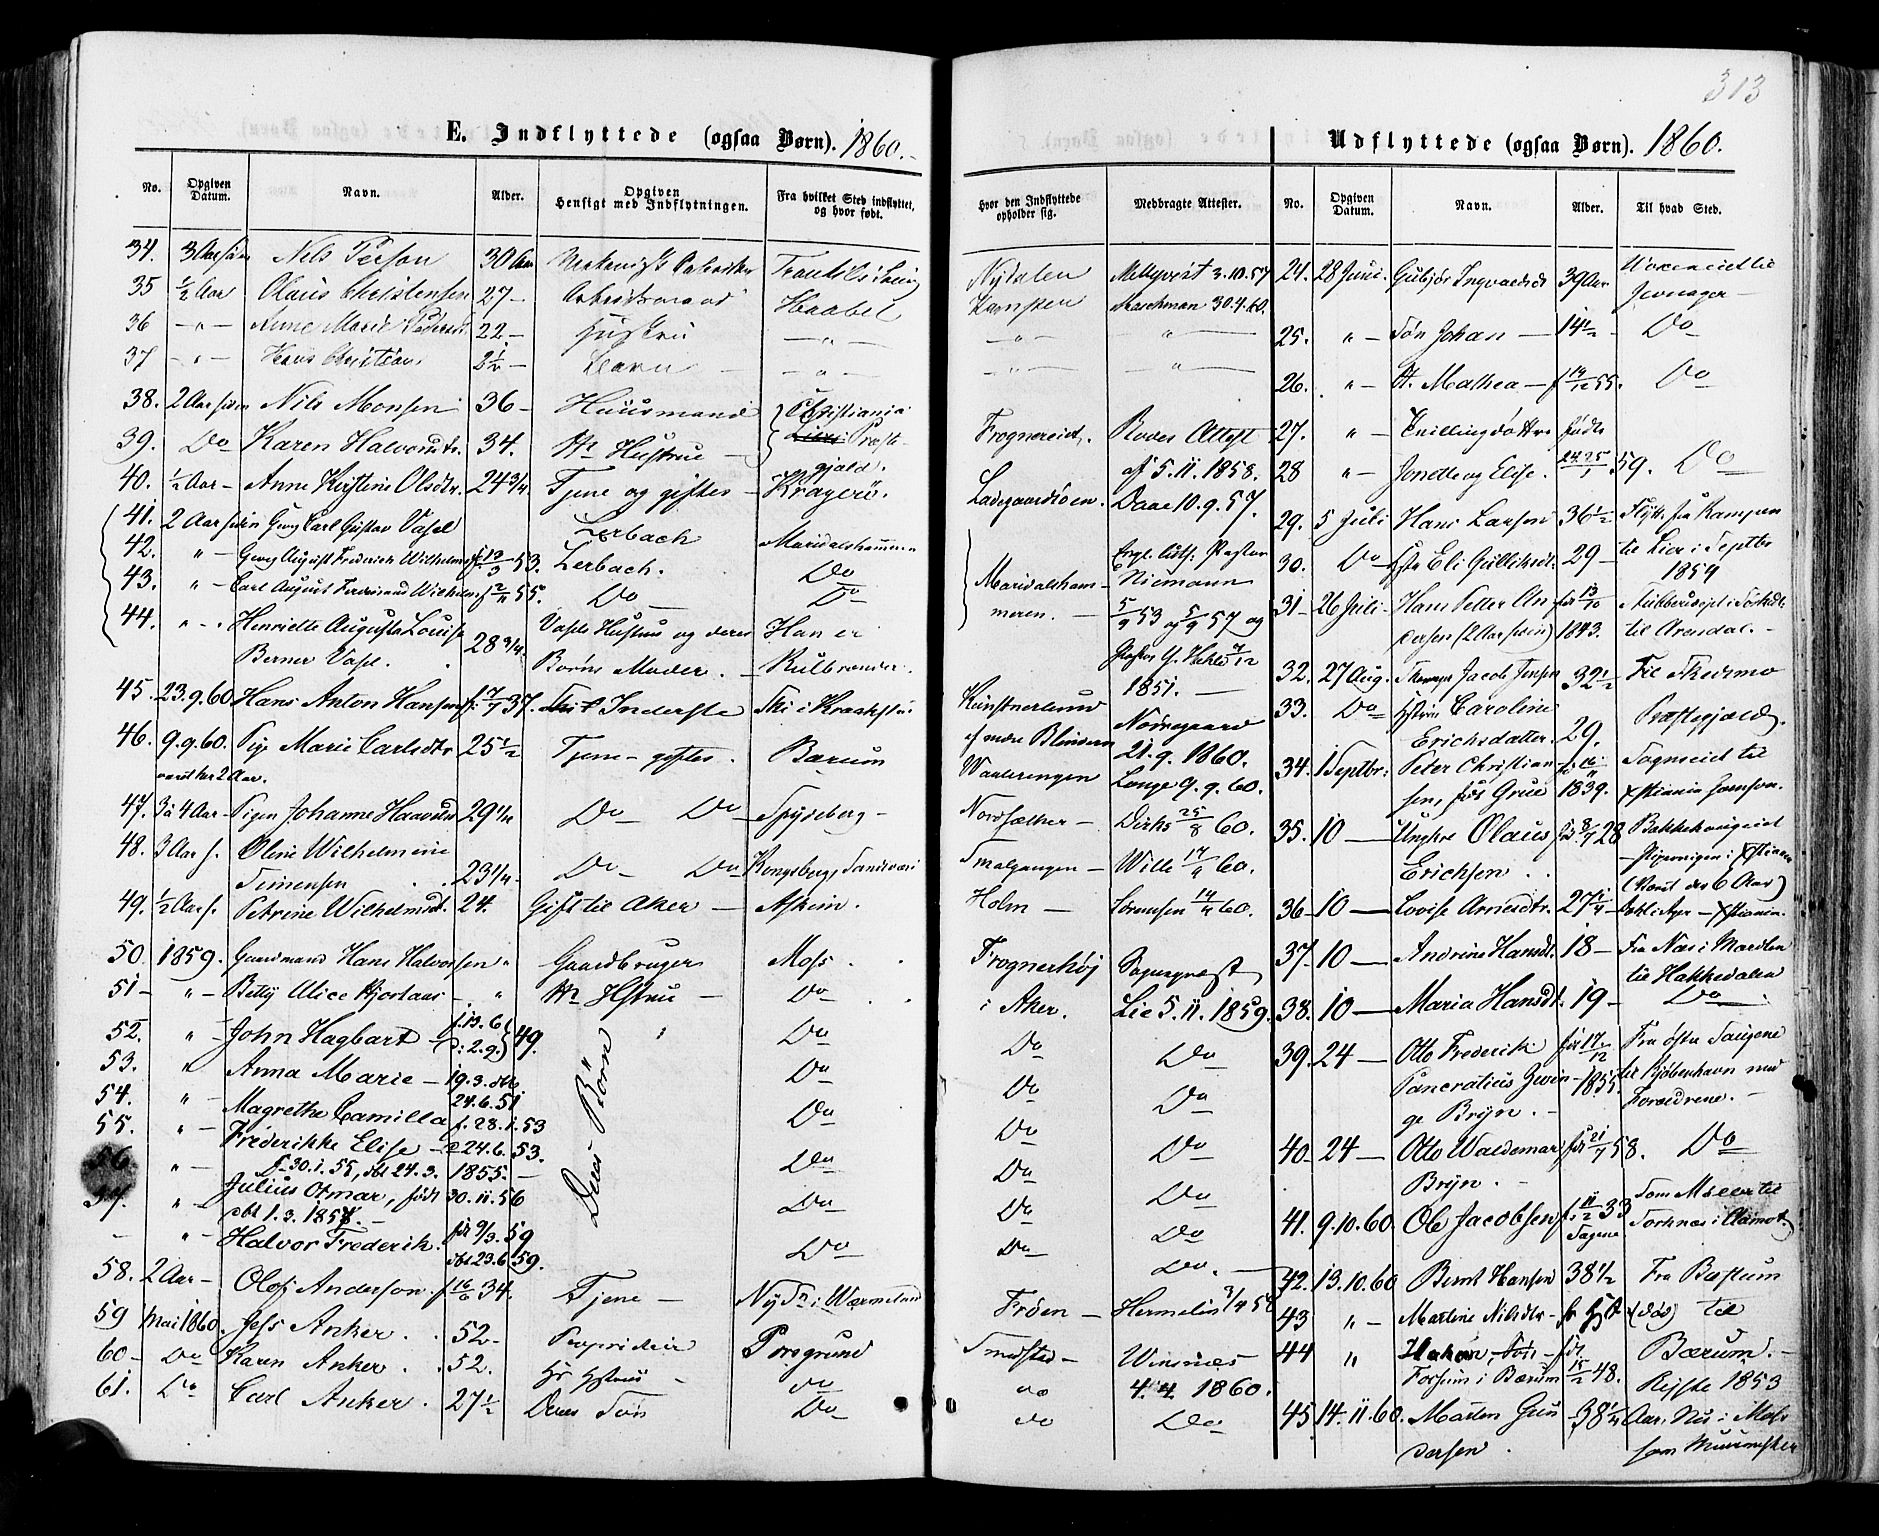 313
E. Indflyttede (ogsaa Børn). 1860.
No. Opgiven Datum. Navn. Alder. Opgiven Hensigt med Indflytningen. Fra hvilket Sted indflyttet, og hvor født.
34. 3 Aar siden Nils Person 30 Aar
35 ½ Aar Olaus Christensen 27 - Haabel
36 - " - Anne Marie Pedersd. 22 - Hustru - " -
37 - " - Hans Christian 2½ - - " -
38. 2 Aar siden Nils Monsen 36 - Huusmand Christiania
39. Do Karen Halvorsdtr. 34. Hs Hustrue - Præst-
gjeld.
40. ½ Aar - Anne Kirstine Olsdtr. 24 3/4 Tjene og giftes - Kragerø.
41. 2 Aar siden Georg Carl Gustav Vasel Lerbach Maridalshammeren
42. " - Georg August Frederich Wilhelm f. 13/3 53. Lerbach. Do
43. " - Carl August Ferdinand Wilhelm f 2/11 55. Do Do
44. " - Henriette Augusta Louise
Berner Vasel. 28 3/4. Vasels Hustru og deres
Børns Moder. -
45. 23.9.60 Hans Anton Hansen f. 17/7 37. Inderste Ski i Kraakstad
46. 9.9.60. Pige Marie Carlsdtr 25½ Tjene - giftes. Bærum
været her 2 Aar.
47. 3 à 4 Aar - Pigen Johanne Haavelsd 29¼ Do Do Spydeberg -
48. 3 Aar s. Oline Wilhelmine
Simensen 23¼ - Do Do Kongsberg, Sandsvær
49. ½ Aar s. Petrine Wilhelmsdt. 24. Gift til Aker - Askim.
50. 1859. Gaardmand Hans Halvorsen " Gaardbruger Moss.
51 - " - Betty Alice Hjortaas - " Hs Hstru - Do
52. " - John Hagbart f. 13.6 D: 2.9. 49. Do
53. " Anna Marie - 19.3. dbt
24.6.51 Do
54. " - Magrethe Camilla f. 28.1.53 Do
55. " - Frederikke Elise - D 24.6.53.
56 " - f. 30.1.55, dbt 24.3. 1855. - Do
57. " - Julius Otmar, født 30.11.56
dbt 1.3.1857. - Do
- " - Halvor Frederik. før 9/3 59
dbt 23.6.59. Do
Deres Børn
58. 2 Aar - Olof Anderson f 16/6 34. Tjene - Wærmeland
59 Mai 1860. Jess Anker. 52 - Proprietair Porsgrund
60 - Do Karen Anker. 52. Hs Hstrue - do
61. Do Carl Anker. 27½ Deres Søn Do
Udflyttede (ogsaa Børn). 1860.
Hvor den Indflyttede opholder sig. Medbragte Attester. No. Opgiven Datum. Navn. Alder. Til hvad Sted.
Nydalen 3.10.57 24. 28 Juni. Gubjør Ingvaldsdt 39 Aar
Kampen Aarckman 30.4.60. Jevnager -
- " - " 25. " - Søn Johan - 14½ - Do
- " - " 26. " - D. Mathea - f 14/12 55. Do
Frognereid. Rodes Attest 27. " - Tvillingdøttre fødte
af 5.11.1858. 28 " - Jondte og Elise. 24 25/1 59. Do
Ladegaardsøen. Daae 10.9.57. 29. 5 Juli Hans Larsen 36½ - Flytt. fra Kampen
Pastor 30. Do - Hstr Eli Gulliksdt. 29 - til Lier i Septbr
1859
Maridalsham-
meren. - Niemann
5/9 53 og 5/9 57 og 31. 26 Juli - Hans Petter An-
dersen (2 Aar siden) før 13/10 1843.
til Arendal. -
1851. - 32. 27 Aug. Jacob Jensen 32½ Til Skedsmo
Kunstnerlund Nordregaard 33. Do Hstrue Caroline
Erichsdatter. 29. Præstegjeld.
Blindern 21.9.1860. 34. 1 Septbr: Peter Christian-
sen, født Grue f. 16/11 1839. Sogneeid til
Xstiania
Waalerengen Lange 9.9.60.
Nordsæther - Dirks 25/8 60. 35. 10 - Ungkl Olaus
Erichsen. fdt 8/7 28 Bakkehaugeid
Xstiania
Smalgangen - Wille 17/9 60. (Været der 6 Aar)
Holm - Sörensen 14/4 60. 36 - 10 - Lovise Arnesdtr. 27¼ - Xstiania.
Frognerhøj Sognepræst 37. 10 - Andrine Hansdt. 18 - Fra Næs i
til Hakkedalen
i Aker. Lie 5.11.1859. 38. 10 - Maria Hansdt. 19 - Do
Do Do 39. 24 - Otto Frederik
Pancratius Zwin-
ge Bryn. - før 17/12 - 1855. Fra østre
til Kjøbenhavn med
Forældrene. -
Do Do
Do Do 40 - 24 - Otto Waldemar
Bryn. før 21/7 58. Do
Do Do
Do Do 41. 9.10.60. Ole Jacobsen f. 11/2 33 Som Møller til
i Aamot
Do Do. - 42. 13.10.60 Bernt Hansen 38½ Fra Bæstum
Frøen - Hermelin 3/4 58 43 " - Martine Nilsdtr - før 50 (død) til
Smedstad - Winsnæs 44 " Hakon, Søn - før
Fossum i Bærum 15/2 48. Bærum. -
Rejste 1853
do 4.4.1860.
do Do 45 14.11.60. Morten Gun-
dersen. 38¼
som Muurmester